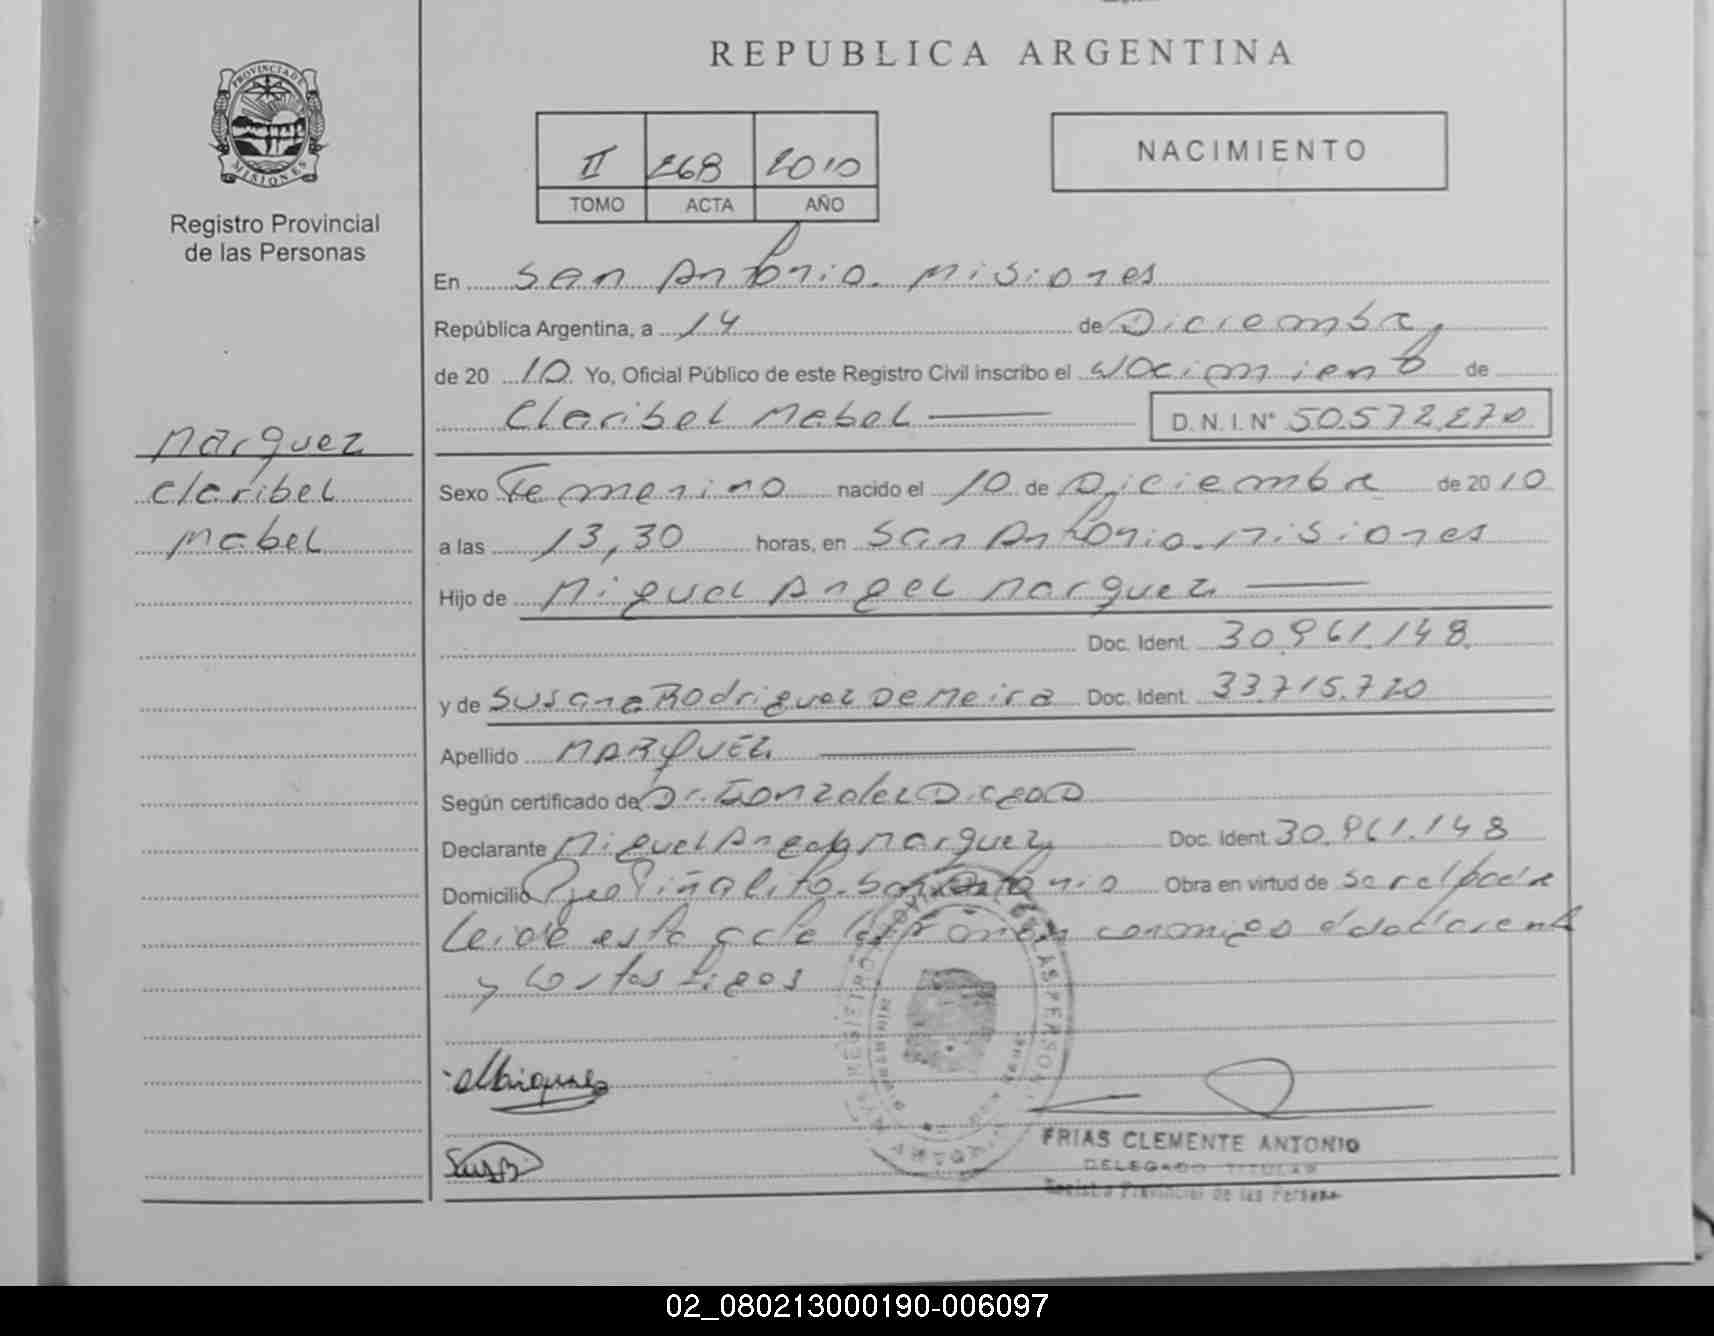 REPUBLICA ARGENTINA
PROVINCIA DE
MISIONES
Registro Provincial
de las Personas
II 268 2010
TOMO ACTA AÑO
NACIMIENTO
En San Antonio. Misiones
República Argentina, a 14 de Diciembre
de 20 10 Yo, Oficial Público de este Registro Civil inscribo el Nacimiento de
Claribel Mabel D.N.I.Nº 50.572.270
Marquez
Claribel
Mabel
Sexo Femenino nacido el 10 de Diciembre de 20 10
a las 13,30 horas, en San Antonio. Misiones
Hijo de Miguel Angel Marquez
Doc. Ident. 30.961.148
y de Susana Rodriguez De Meira Doc. Ident. 33.715.720
Apellido MARQUEZ
Según certificado de Dr. Gonzalez Diego D
Declarante Miguel Angel Marquez Doc. Ident. 30.961.148
Domicilio Piñalito. San Antonio Obra en virtud de ser el padre
Leida esta acta la firman conmigo el declarante
y los testigos
FRIAS CLEMENTE ANTONIO
DELEGADO TITULAR
Registro Provincial de las Personas
02_080213000190-006097